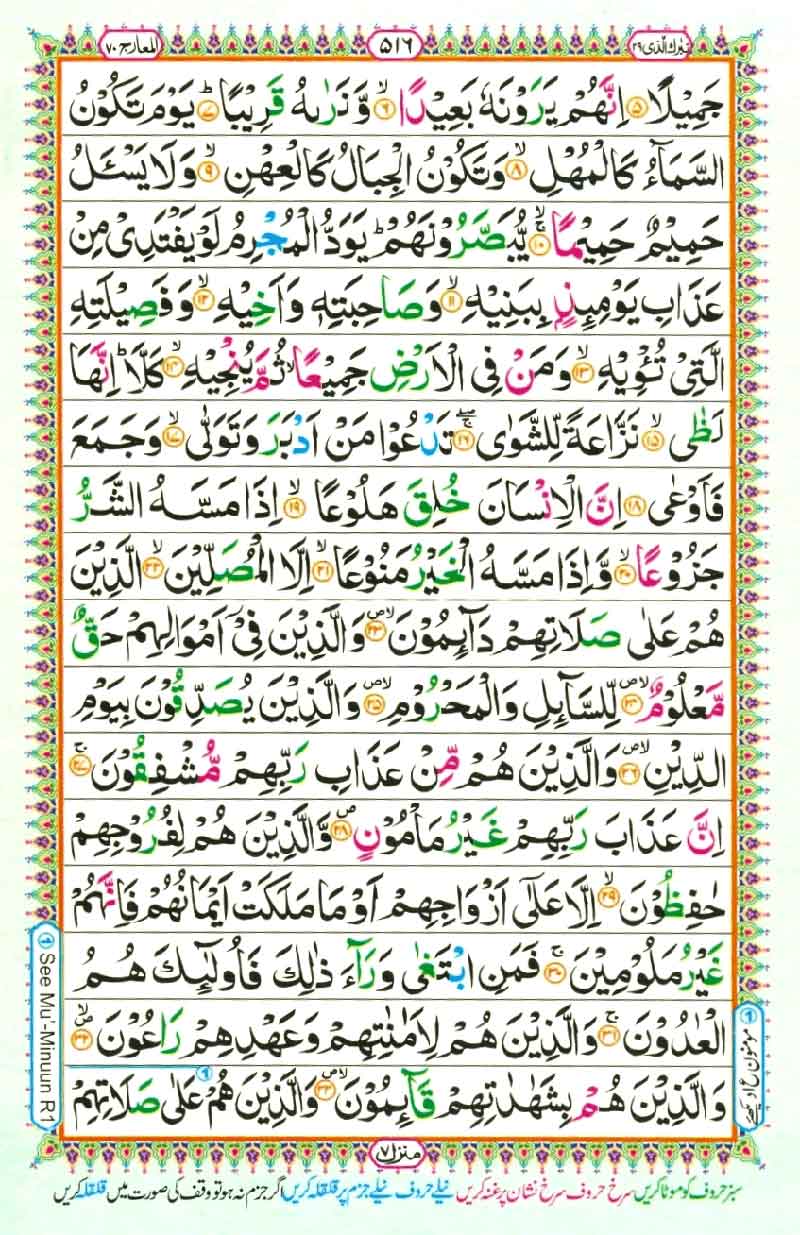 تبٰرك الذی ۲۹
۵۱۶
المعارج ۷۰
جَمِيْلًا ۝۵ اِنَّهُمْ يَرَوْنَهٗ بَعِيْدًا ۙ۝۶ وَّنَرٰىهُ قَرِيْبًا ؕ۝۷ يَوْمَ تَكُوْنُ
السَّمَآءُ كَالْمُهْلِ ۙ۝۸ وَتَكُوْنُ الْجِبَالُ كَالْعِهْنِ ۙ۝۹ وَلَا يَسْـَٔلُ
حَمِيْمٌ حَمِيْمًا ۚۖ۝۱۰ يُّبَصَّرُوْنَهُمْ ؕ يَوَدُّ الْمُجْرِمُ لَوْ يَفْتَدِىْ مِنْ
عَذَابِ يَوْمِئِذٍۭ بِبَنِيْهِ ۙ۝۱۱ وَصَاحِبَتِهٖ وَاَخِيْهِ ۙ۝۱۲ وَفَصِيْلَتِهِ
الَّتِىْ تُـْٔوِيْهِ ۙ۝۱۳ وَمَنْ فِى الْاَرْضِ جَمِيْعًا ۙ ثُمَّ يُنْجِيْهِ ۙ۝۱۴ كَلَّا ؕ اِنَّهَا
لَظٰى ۙ۝۱۵ نَزَّاعَةً لِّلشَّوٰى ۚۖ۝۱۶ تَدْعُوْا مَنْ اَدْبَرَ وَتَوَلّٰى ۙ۝۱۷ وَجَمَعَ
فَاَوْعٰى ۝۱۸ اِنَّ الْاِنْسَانَ خُلِقَ هَلُوْعًا ۙ۝۱۹ اِذَا مَسَّهُ الشَّرُّ
جَزُوْعًا ۙ۝۲۰ وَّاِذَا مَسَّهُ الْخَيْرُ مَنُوْعًا ۙ۝۲۱ اِلَّا الْمُصَلِّيْنَ ۙ۝۲۲ الَّذِيْنَ
هُمْ عَلٰى صَلَاتِهِمْ دَآئِمُوْنَ ۪ۙ۝۲۳ وَالَّذِيْنَ فِىْۤ اَمْوَالِهِمْ حَقٌّ
مَّعْلُوْمٌ ۪ۙ۝۲۴ لِّلسَّآئِلِ وَالْمَحْرُوْمِ ۪ۙ۝۲۵ وَالَّذِيْنَ يُصَدِّقُوْنَ بِيَوْمِ
الدِّيْنِ ۪ۙ۝۲۶ وَالَّذِيْنَ هُمْ مِّنْ عَذَابِ رَبِّهِمْ مُّشْفِقُوْنَ ۚ۝۲۷
اِنَّ عَذَابَ رَبِّهِمْ غَيْرُ مَاْمُوْنٍ ۪۝۲۸ وَالَّذِيْنَ هُمْ لِفُرُوْجِهِمْ
حٰفِظُوْنَ ۙ۝۲۹ اِلَّا عَلٰٓى اَزْوَاجِهِمْ اَوْ مَا مَلَكَتْ اَيْمَانُهُمْ فَاِنَّهُمْ
غَيْرُ مَلُوْمِيْنَ ۚ۝۳۰ فَمَنِ ابْتَغٰى وَرَآءَ ذٰلِكَ فَاُولٰٓئِكَ هُمُ
الْعٰدُوْنَ ۚ۝۳۱ وَالَّذِيْنَ هُمْ لِاَمٰنٰتِهِمْ وَعَهْدِهِمْ رٰعُوْنَ ۪ۙ۝۳۲
وَالَّذِيْنَ هُمْ بِشَهٰدٰتِهِمْ قَآئِمُوْنَ ۪ۙ۝۳۳ وَالَّذِيْنَ هُمْ عَلٰى صَلَاتِهِمْ
See Mu'-Minuun R1
منزل ۷
سبز حروف کو موٹا کریں سرخ حروف سرخ نشان پر غنہ کریں نیلے حروف نیلے جزم پر قلقلہ کریں اگر جزم نہ ہو تو وقف کی صورت میں قلقلہ کریں